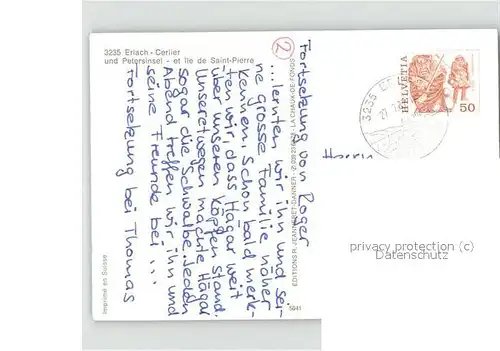 3235 Erlach • Cerlier
und Petersinsel - et Ile de Saint-Pierre
2
Fortsetzung von Roger
... lernten wir ihn und sei-
ne grosse Familie näher
kennen. Schon bald merk-
ten wir, dass Hägar weit
über unseren Köpfen stand.
Unseretwegen machte Hägar
sogar die Schwalbe. Jeden
Abend treffen wir ihn und
seine Freunde bei ...
Fortsetzung bei Thomas
EDITIONS R. JEANNERET-DANNER - LA CHAUX-DE-FONDS
5041
Imprimé en Suisse
3235
HELVETIA
50
Herrn
privacy protection (c)
Datenschutz